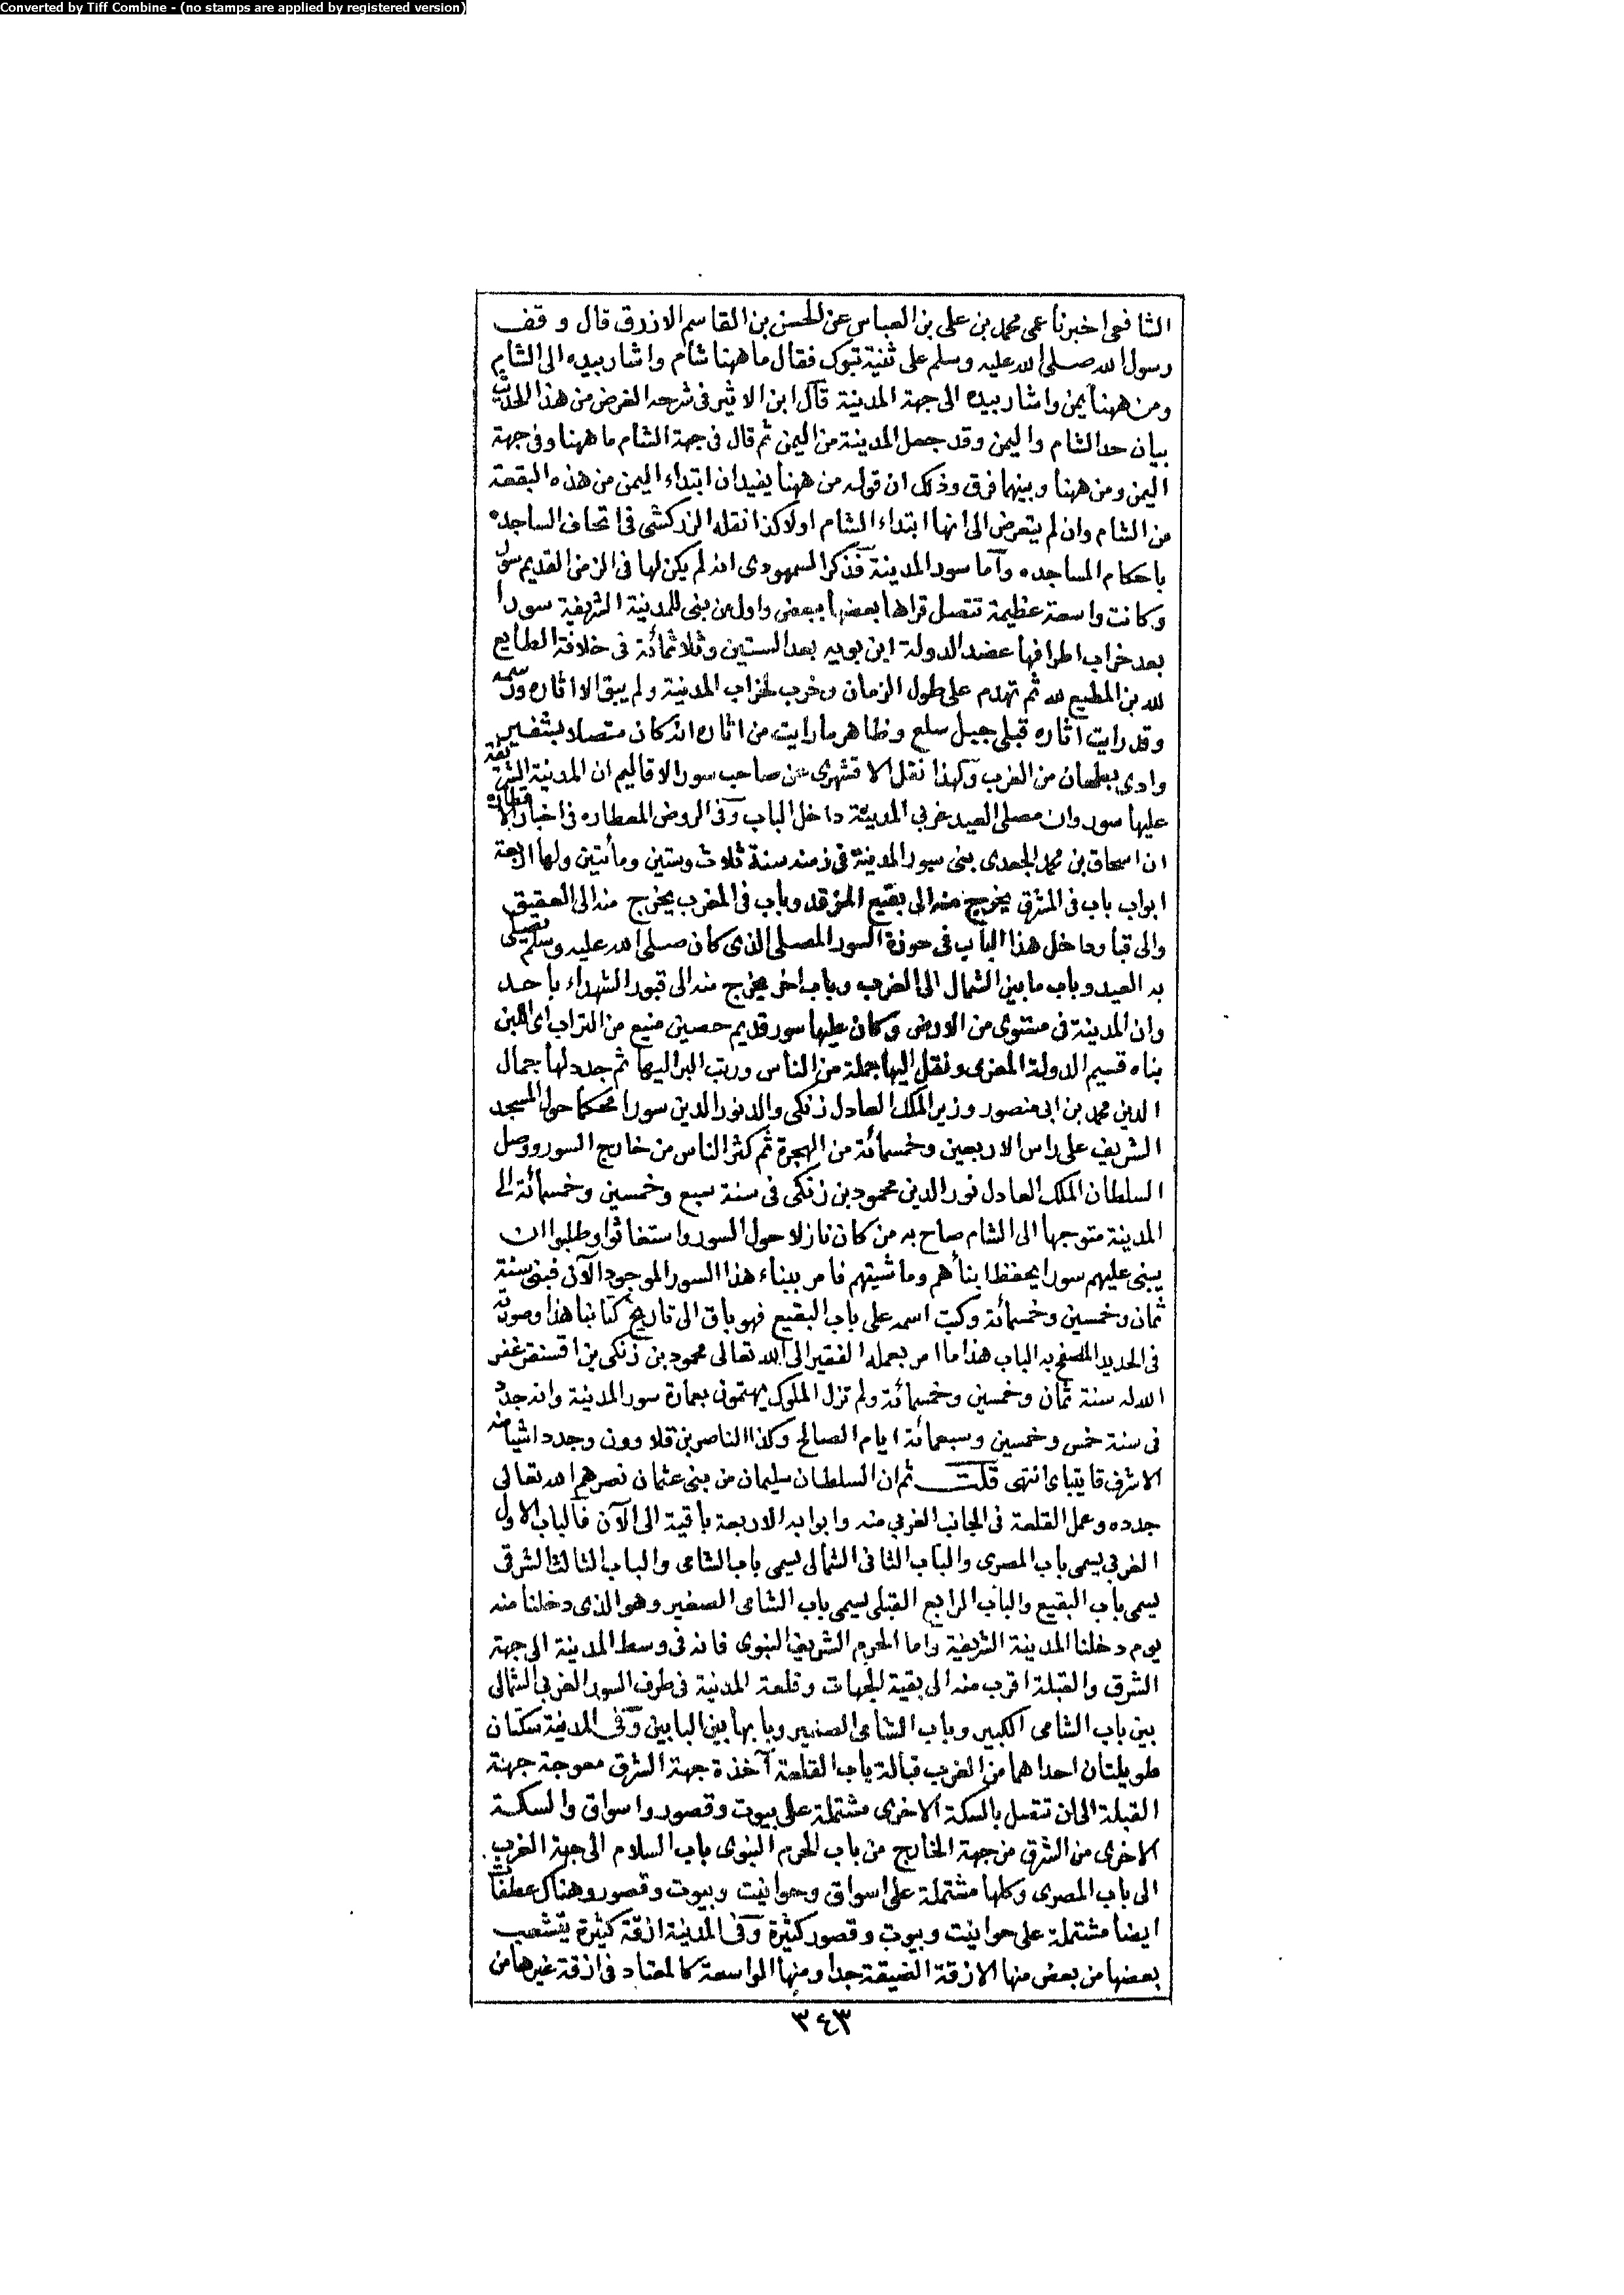 Converted by Tiff Combine - (no stamps are applied by registered version)
الشافعى اخبرنا عمى محمد بن على بن العباس عن الحسن بن القاسم الازرق قال وقف
رسول الله صلى الله عليه وسلم على ثنية تبوك فقال ما ههنا شام واشار بيده الى الشام
ومن ههنا يمن واشار بيده الى جهة المدينة قال ابن الاثير فى شرحه الغرض من هذا الحديث
بيان حد الشام واليمن وقد جعل المدينة من اليمن ثم قال فى جهة الشام ما ههنا وفى جهة
اليمن ومن ههنا وبينهما فرق وذلك ان قوله من ههنا يفيد ان ابتداء اليمن من هذه البقعة
من الشام وان لم يتعرض الى انها ابتداء الشام اولا كذا نقله الزركشى فى اتحاف الساجد
باحكام المساجد وأما سور المدينة فذكر السمهودى انه لم يكن لها فى الزمن القديم سور
وكانت واسعة عظيمة تتصل قراها بعضها ببعض واول من بنى للمدينة الشريفة سورا
بعد خراب اطرافها عضد الدولة ابن بويه بعد الستين وثلاثمائة فى خلافة الطايع
لله بن المطيع لله ثم تهدم على طول الزمان وخرب لخراب المدينة ولم يبق الا اثاره ورسمه
وقد رايت آثاره قبلى جبل سلع وظاهر ما رايت من اثاره انه كان متصلا بشفير
وادى بطحان من الغرب ولهذا نقل الاقشهرى عن صاحب سور الاقاليم ان المدينة الشريفة
عليها سور وان مصلى العيد غربي المدينة داخل الباب وفى الروض المعطار فى اخبار الاقطار
ان اسحاق بن محمد الجعدى بنى سور المدينة فى زمنه سنة ثلاث وستين ومأتين ولها اربعة
ابواب باب فى المشرق يخرج منه الى بقيع الغرقد وباب فى المغرب يخرج منه الى العقيق
والى قبا وداخل هذا الباب فى حوزة السور المصلى الذى كان صلى الله عليه وسلم يصلى
به العيد وباب ما بين الشمال الى الغرب وباب اخر يخرج منه الى قبور الشهداء باحد
وان المدينة فى مستوى من الارض وكان عليها سور قديم حصين منيع من التراب اى اللبن
بناه قسيم الدولة المعزى ونقل اليها جملة من الناس ورتب البر اليها ثم جدد لها جمال
الدين محمد بن ابى منصور وزير الملك العادل زنكى والد نور الدين سورا محكما حول المسجد
الشريف على راس الاربعين وخمسمائة من الهجرة ثم كثر الناس من خارج السور ووصل
السلطان الملك العادل نور الدين محمود بن زنكى فى سنة سبع وخمسين وخمسمائة الى
المدينة متوجها الى الشام صاح به من كان نازلا حول السور واستغاثوا وطلبوا ان
يبنى عليهم سورا يحفظ ابناهم وماشيتهم فامر ببناء هذا السور الموجود الآن فبنى سنة
ثمان وخمسين وخمسمائة وكتب اسمه على باب البقيع فهو باق الى تاريخ كتابنا هذا وصورته
فى الحديد المصفح به الباب هذا ما امر بعمله الفقير الى الله تعالى محمود بن زنكى بن اقسنقر غفر
الله له سنة ثمان وخمسين وخمسمائة ولم تزل الملوك يهتمون بعمارة سور المدينة وانه جدد
فى سنة خمس وخمسين وسبعمائة ايام الصالح وكذا الناصر بن قلاوون وجدد اشيا منه
الاشرف قايتباى انتهى قلت ثم ان السلطان سليمان من بنى عثمان نصرهم الله تعالى
جدده وعمل القلعة فى الجانب الغربي منه وابوابه الاربعة باقية الى الآن فالباب الاول
الغربي يسمى باب المصرى والباب الثانى الشمالى يسمى باب الشامى والباب الثالث الشرقى
يسمى باب البقيع والباب الرابع القبلى يسمى باب الشامى الصغير وهو الذى دخلنا منه
يوم دخلنا المدينة الشريفة واما الحرم الشريف النبوى فانه فى وسط المدينة الى جهة
الشرق والقبلة اقرب منه الى بقية الجهات وقلعة المدينة فى طرف السور الغربي الشمالى
بين باب الشامى الكبير وباب الشامى الصغير وبابها بين البابين وفى المدينة سكتان
طويلتان احداهما من الغرب قبالة باب القلعة آخذة جهة الشرق معوجة جهة
القبلة الى ان تتصل بالسكة الاخرى مشتملة على بيوت وقصور واسواق والسكة
الاخرى من الشرق من جهة الخارج من باب الحرم النبوى باب السلام الى جهة الغرب
الى باب المصرى وكلها مشتملة على اسواق وحوانيت وبيوت وقصور وهناك عطفات
ايضا مشتملة على حوانيت وبيوت وقصور كثيرة وفى المدينة ازقة كثيرة يتشعب
بعضها من بعض منها الازقة الضيقة جدا ومنها الواسعة كالمعتاد فى ازقة غيرها من
٣٤٣